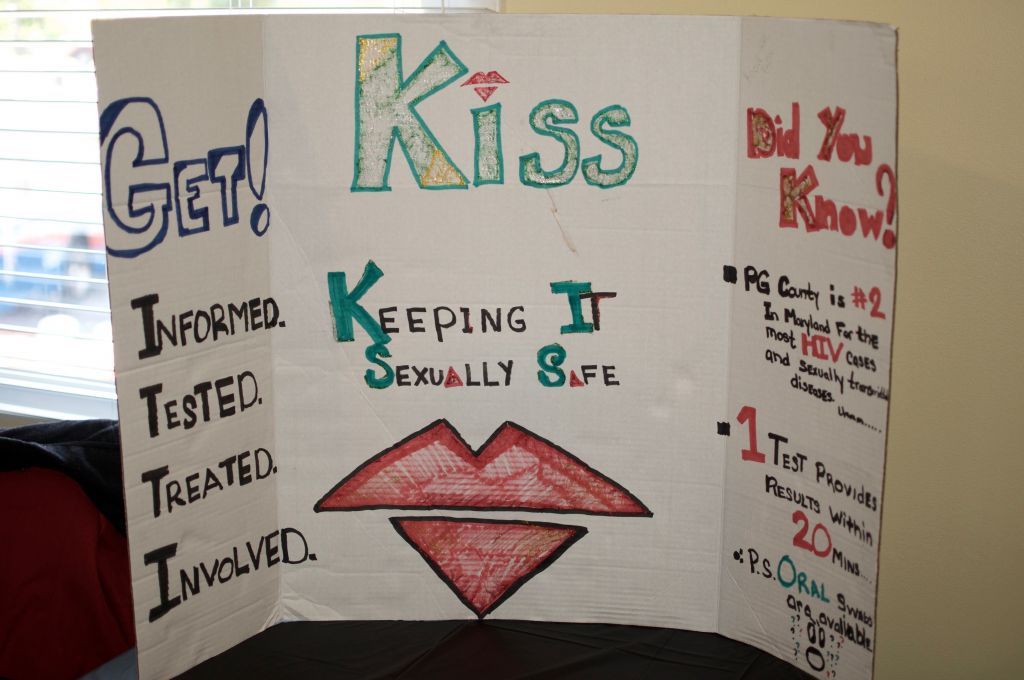 GET!
INFORMED.
TESTED.
TREATED.
INVOLVED.
Kiss
KEEPING IT
SEXUALLY SAFE
Did You
Know?
PG County is #2
In Maryland For the
most HIV cases
and sexually
diseases. Umm.....
1 TEST PROVIDES
RESULTS Within
20 Mins....
P.S. ORAL swabs
are available